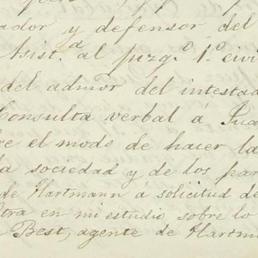 ador y defensor del
Asist.a al juzg.o 1.o civi
del admor del intestad
Consulta verbal á Jua
re el modo de hacer la
la sociedad y de los par
de Hartmann á solicitud de
otra en mi estudio sobre lo
Best, agente de Hartm